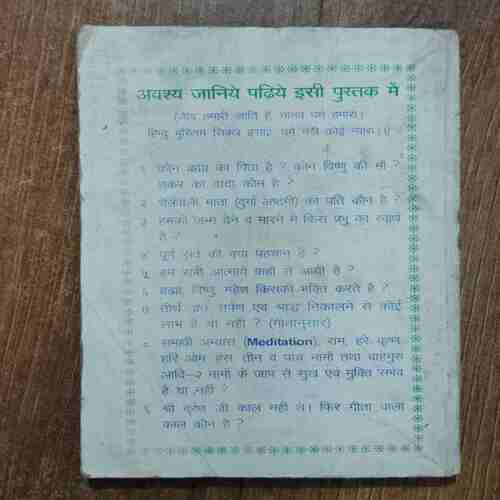 अवश्य जानिये पढ़िये इसी पुस्तक में
जीव हमारी जाति है, मानव धर्म हमारा।
हिन्दु मुस्लिम सिक्ख इसाई, धर्म नहीं कोई न्यारा।।
१. कौन ब्रह्मा का पिता है ? कौन विष्णु की माँ ?
शंकर का दादा कौन है ?
२. शेरांवाली माता (दुर्गा अष्टंगी) का पति कौन है ?
३. हमको जन्म देने व मारने में किस प्रभु का स्वार्थ
है ?
४. पूर्ण संत की क्या पहचान है ?
५. हम सभी आत्मायें कहाँ से आयी हैं ?
६. ब्रह्मा, विष्णु, महेश किसकी भक्ति करते हैं ?
७. तीर्थ, व्रत, तर्पण एवं श्राद्ध निकालने से कोई
लाभ है या नहीं ? (गीतानुसार)
८. समाधी अभ्यास (Meditation), राम, हरे कृष्ण,
हरि ओम, हंस, तीन व पांच नामों तथा वाहेगुरु
आदि-२ नामों के जाप से सुख एवं मुक्ति संभव
है या नहीं ?
९. श्री कृष्ण जी काल नहीं थे। फिर गीता वाला
काल कौन है ?